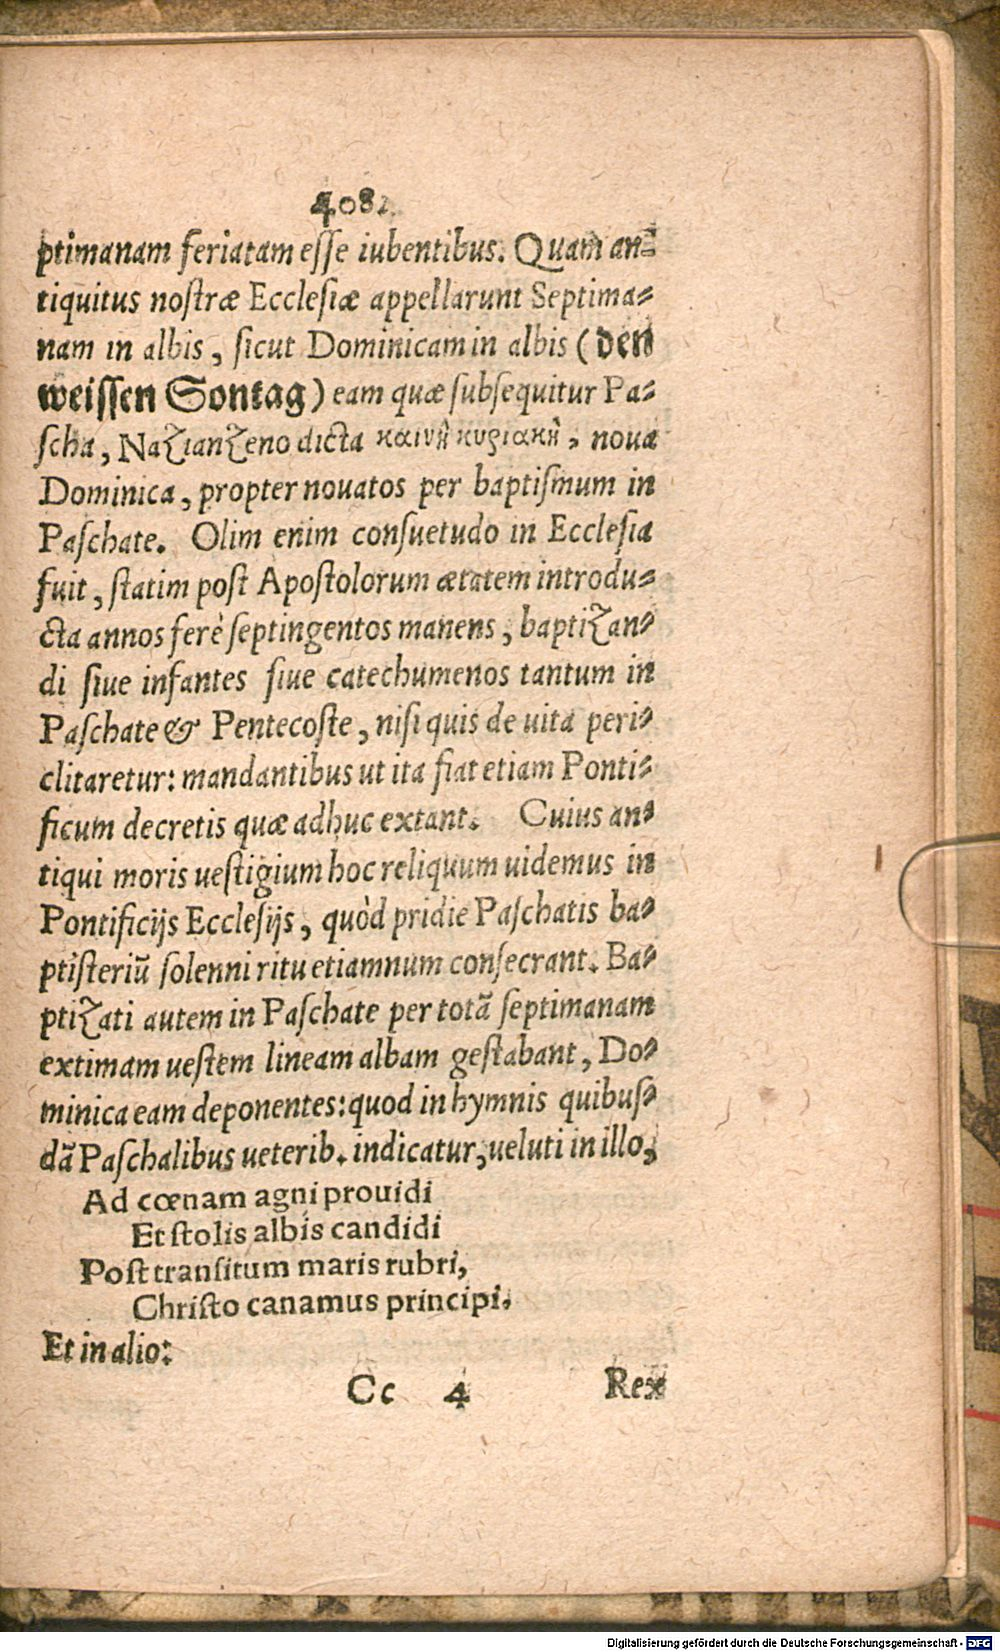 408.
ptimanam feriatam esse iubentibus. Quam an-
tiquitus nostræ Ecclesiæ appellarunt Septima-
nam in albis, sicut Dominicam in albis (den
weissen Sontag) eam quæ subsequitur Pa-
scha, Nazianzeno dicta καινὴ κυριακὴ, noua
Dominica, propter nouatos per baptismum in
Paschate. Olim enim consuetudo in Ecclesia
fuit, statim post Apostolorum ætatem introdu-
cta annos ferè septingentos manens, baptizan-
di siue infantes siue catechumenos tantum in
Paschate & Pentecoste, nisi quis de uita peri-
clitaretur: mandantibus ut ita fiat etiam Ponti-
ficum decretis quæ adhuc extant. Cuius an-
tiqui moris uestigium hoc reliquum uidemus in
Pontificijs Ecclesijs, quòd pridie Paschatis ba-
ptisteriũ solenni ritu etiamnum consecrant. Ba-
ptizati autem in Paschate per totã septimanam
extimam uestem lineam albam gestabant, Do-
minica eam deponentes: quod in hymnis quibus-
dã Paschalibus ueterib. indicatur, ueluti in illo,
Ad cœnam agni prouidi
Et stolis albis candidi
Post transitum maris rubri,
Christo canamus principi.
Et in alio:
Cc 4 Rex
Digitalisierung gefördert durch die Deutsche Forschungsgemeinschaft - DFG